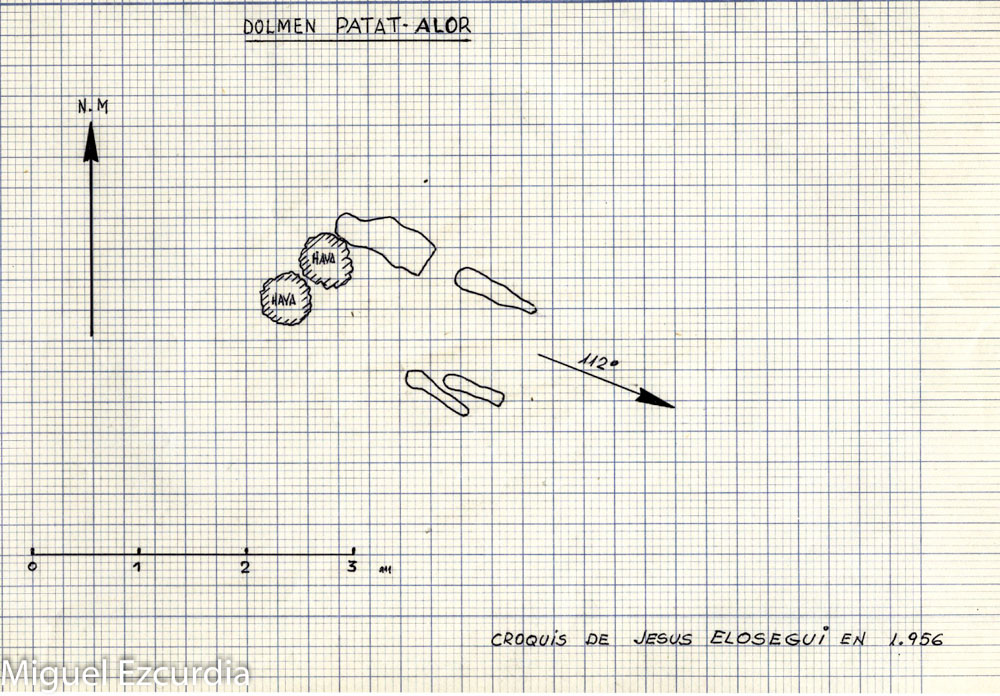 DOLMEN PATAT-ALOR
N.M
HAYA
HAYA
112º
0 1 2 3 m
CROQUiS DE JESUS ELOSEGUi EN 1.956
Miguel Ezcurdia